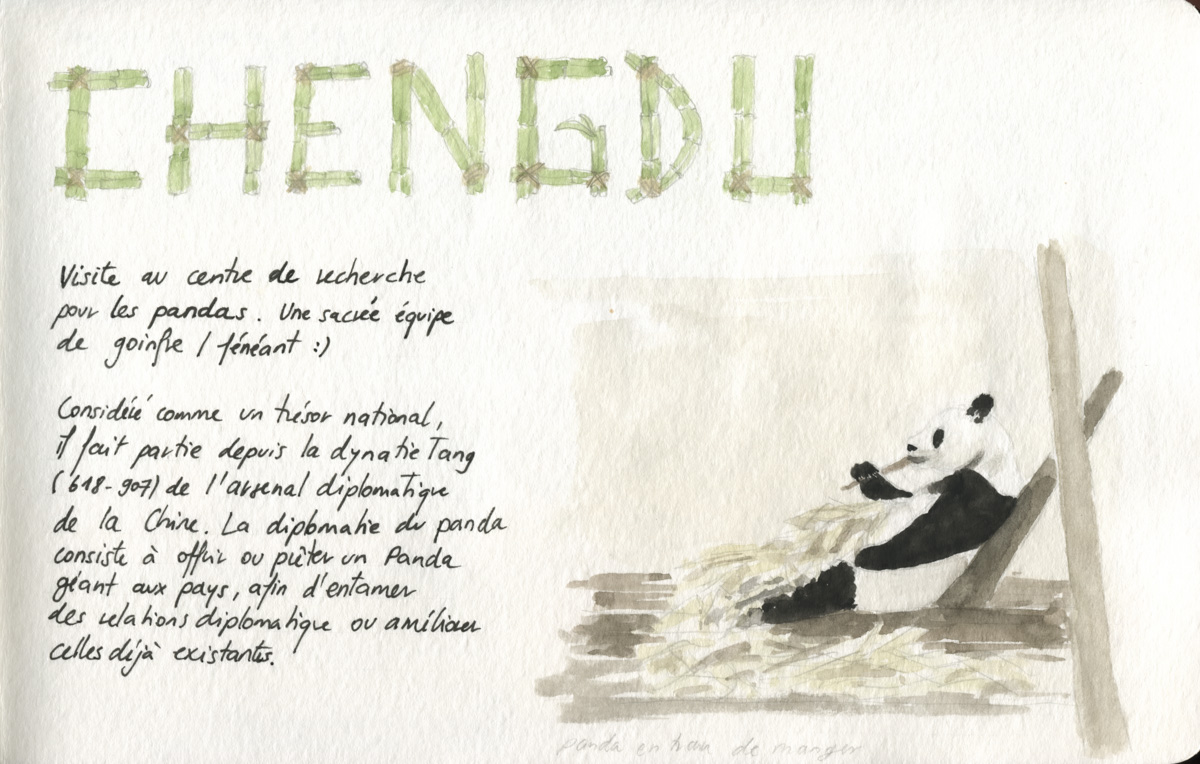 CHENGDU
Visite au centre de recherche
pour les pandas. Une sacrée équipe
de goinfre / fénéant :)
Considéré comme un trésor national,
il fait partie depuis la dynatie Tang
(618-907) de l'arsenal diplomatique
de la Chine. La diplomatie du panda
consiste à offrir ou prêter un Panda
géant aux pays, afin d'entamer
des relations diplomatique ou améliorer
celles déjà existantes.
panda en train de manger